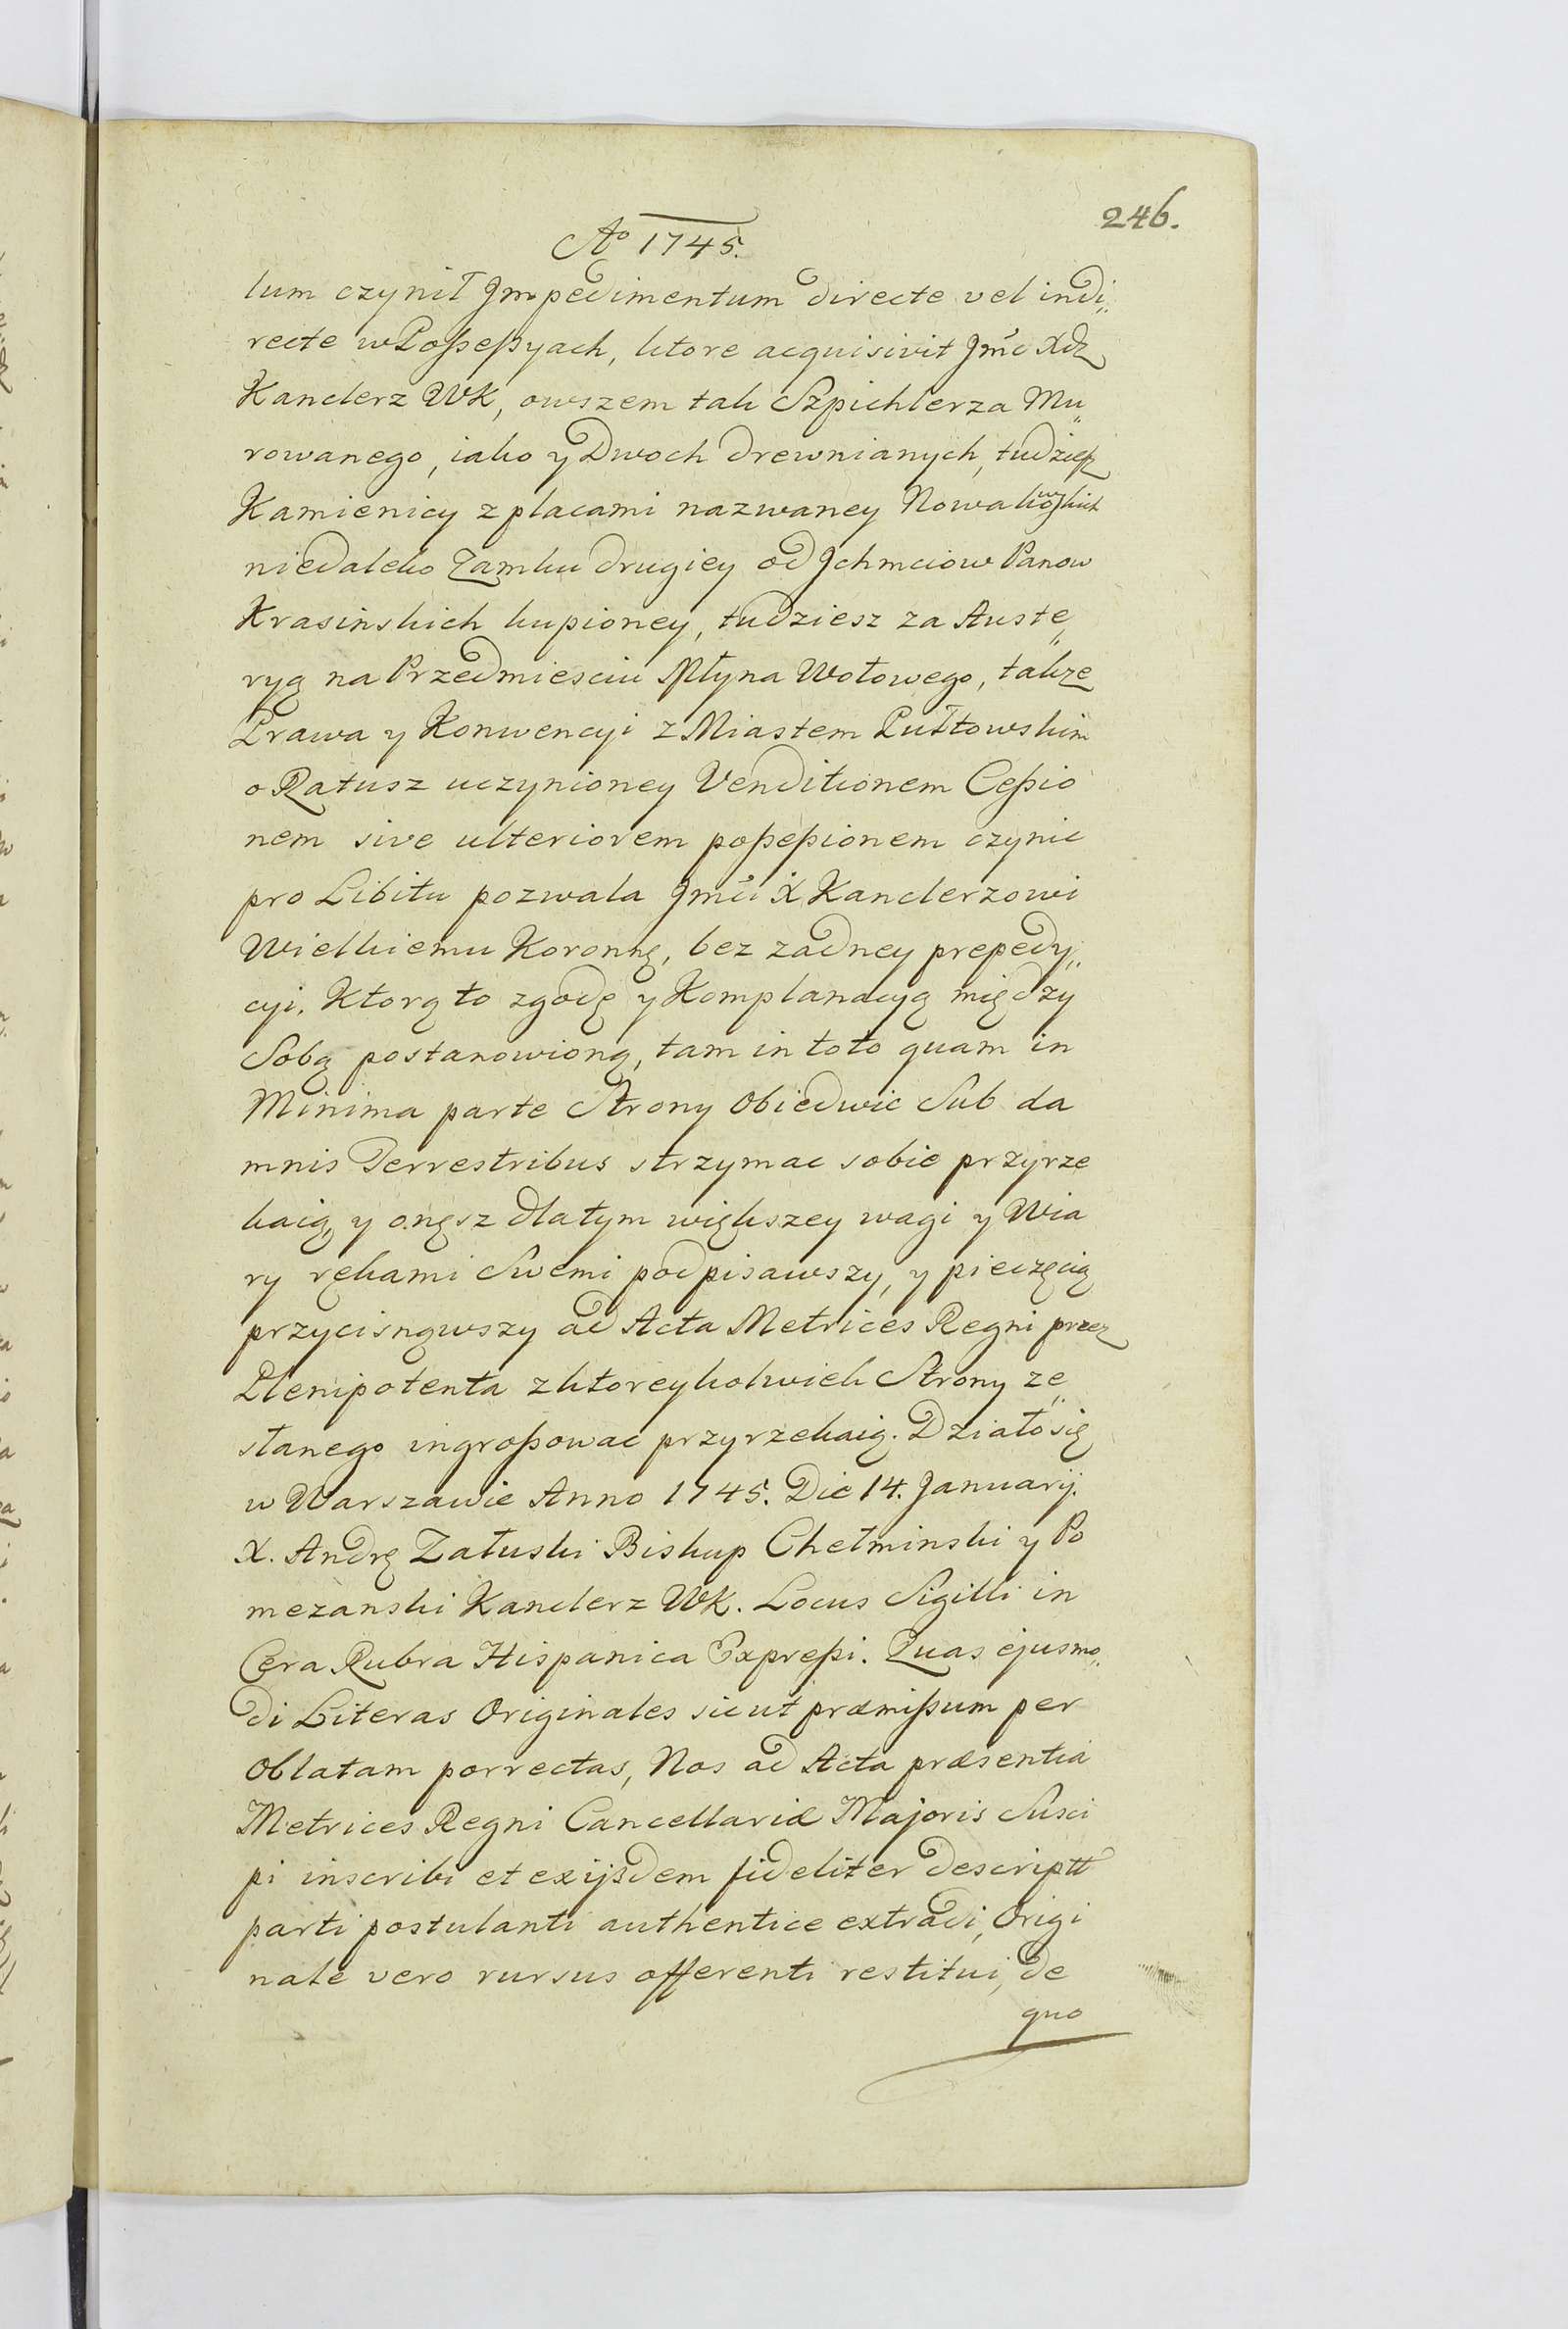 246.
Aº 1745.
lum czynił Jmpedimentum directe vel indi„
recte w Poſseſsyach, ktore acquisivit Jmć Xdz
Kanclerz WK, owszem tak Szpichlerza Mu„
rowanego, iako y Dwoch drewnianych, tudziesz
Kamienicy z placami nazwaney Nowakowskich
niedaleko Zamku drugiey od Jchmciow Panow
Krasinskich kupioney, tudziesz za Auste„
ryą na Przedmiesciu Młyna Wołowego, takze
Prawa y Konwencyi z Miastem Pułtowskim
o Ratusz uczynioney Venditionem Ceſsio
nem sive ulteriorem poſseſsionem czynic
pro Libitu pozwala Jmći X Kanclerzowi
Wielkiemu Koronnę, bez zadney prepedy„
cyi. Ktorą to zgodę y Komplanacyą między
Sobą postanowioną, tam in toto quam in
Minima parte Strony Obiedwie Sub da
mnis Terrestribus strzymac sobie przyrze
kaią, y onęsz dla tym większey wagi y Wia
ry rękami Swemi podpisawszy, y pieczęcią
przycisnąwszy ad Acta Metrices Regni przez
Plenipotenta z ktoreykolwiek Strony ze„
słanego ingroſsowac przyrzekaią. Działo się
w Warszawie Anno 1745. Die 14. Januarij.
X. Andrę Załuski Biskup Chełminski y Po
mezanski Kanclerz WK. Locus Sigilli in
Cera Rubra Hispanica Expreſsi. Quas ejusmo„
di Literas Originales sicut præmiſsum per
Oblatam porrectas, Nos ad Acta præsentia
Metrices Regni Cancellariæ Majoris Susci
pi inscribi et ex ijsdem fideliter descriptt
parti postulanti authentice extradi, Origi
nale vero rursus offerenti restitui, de
quo